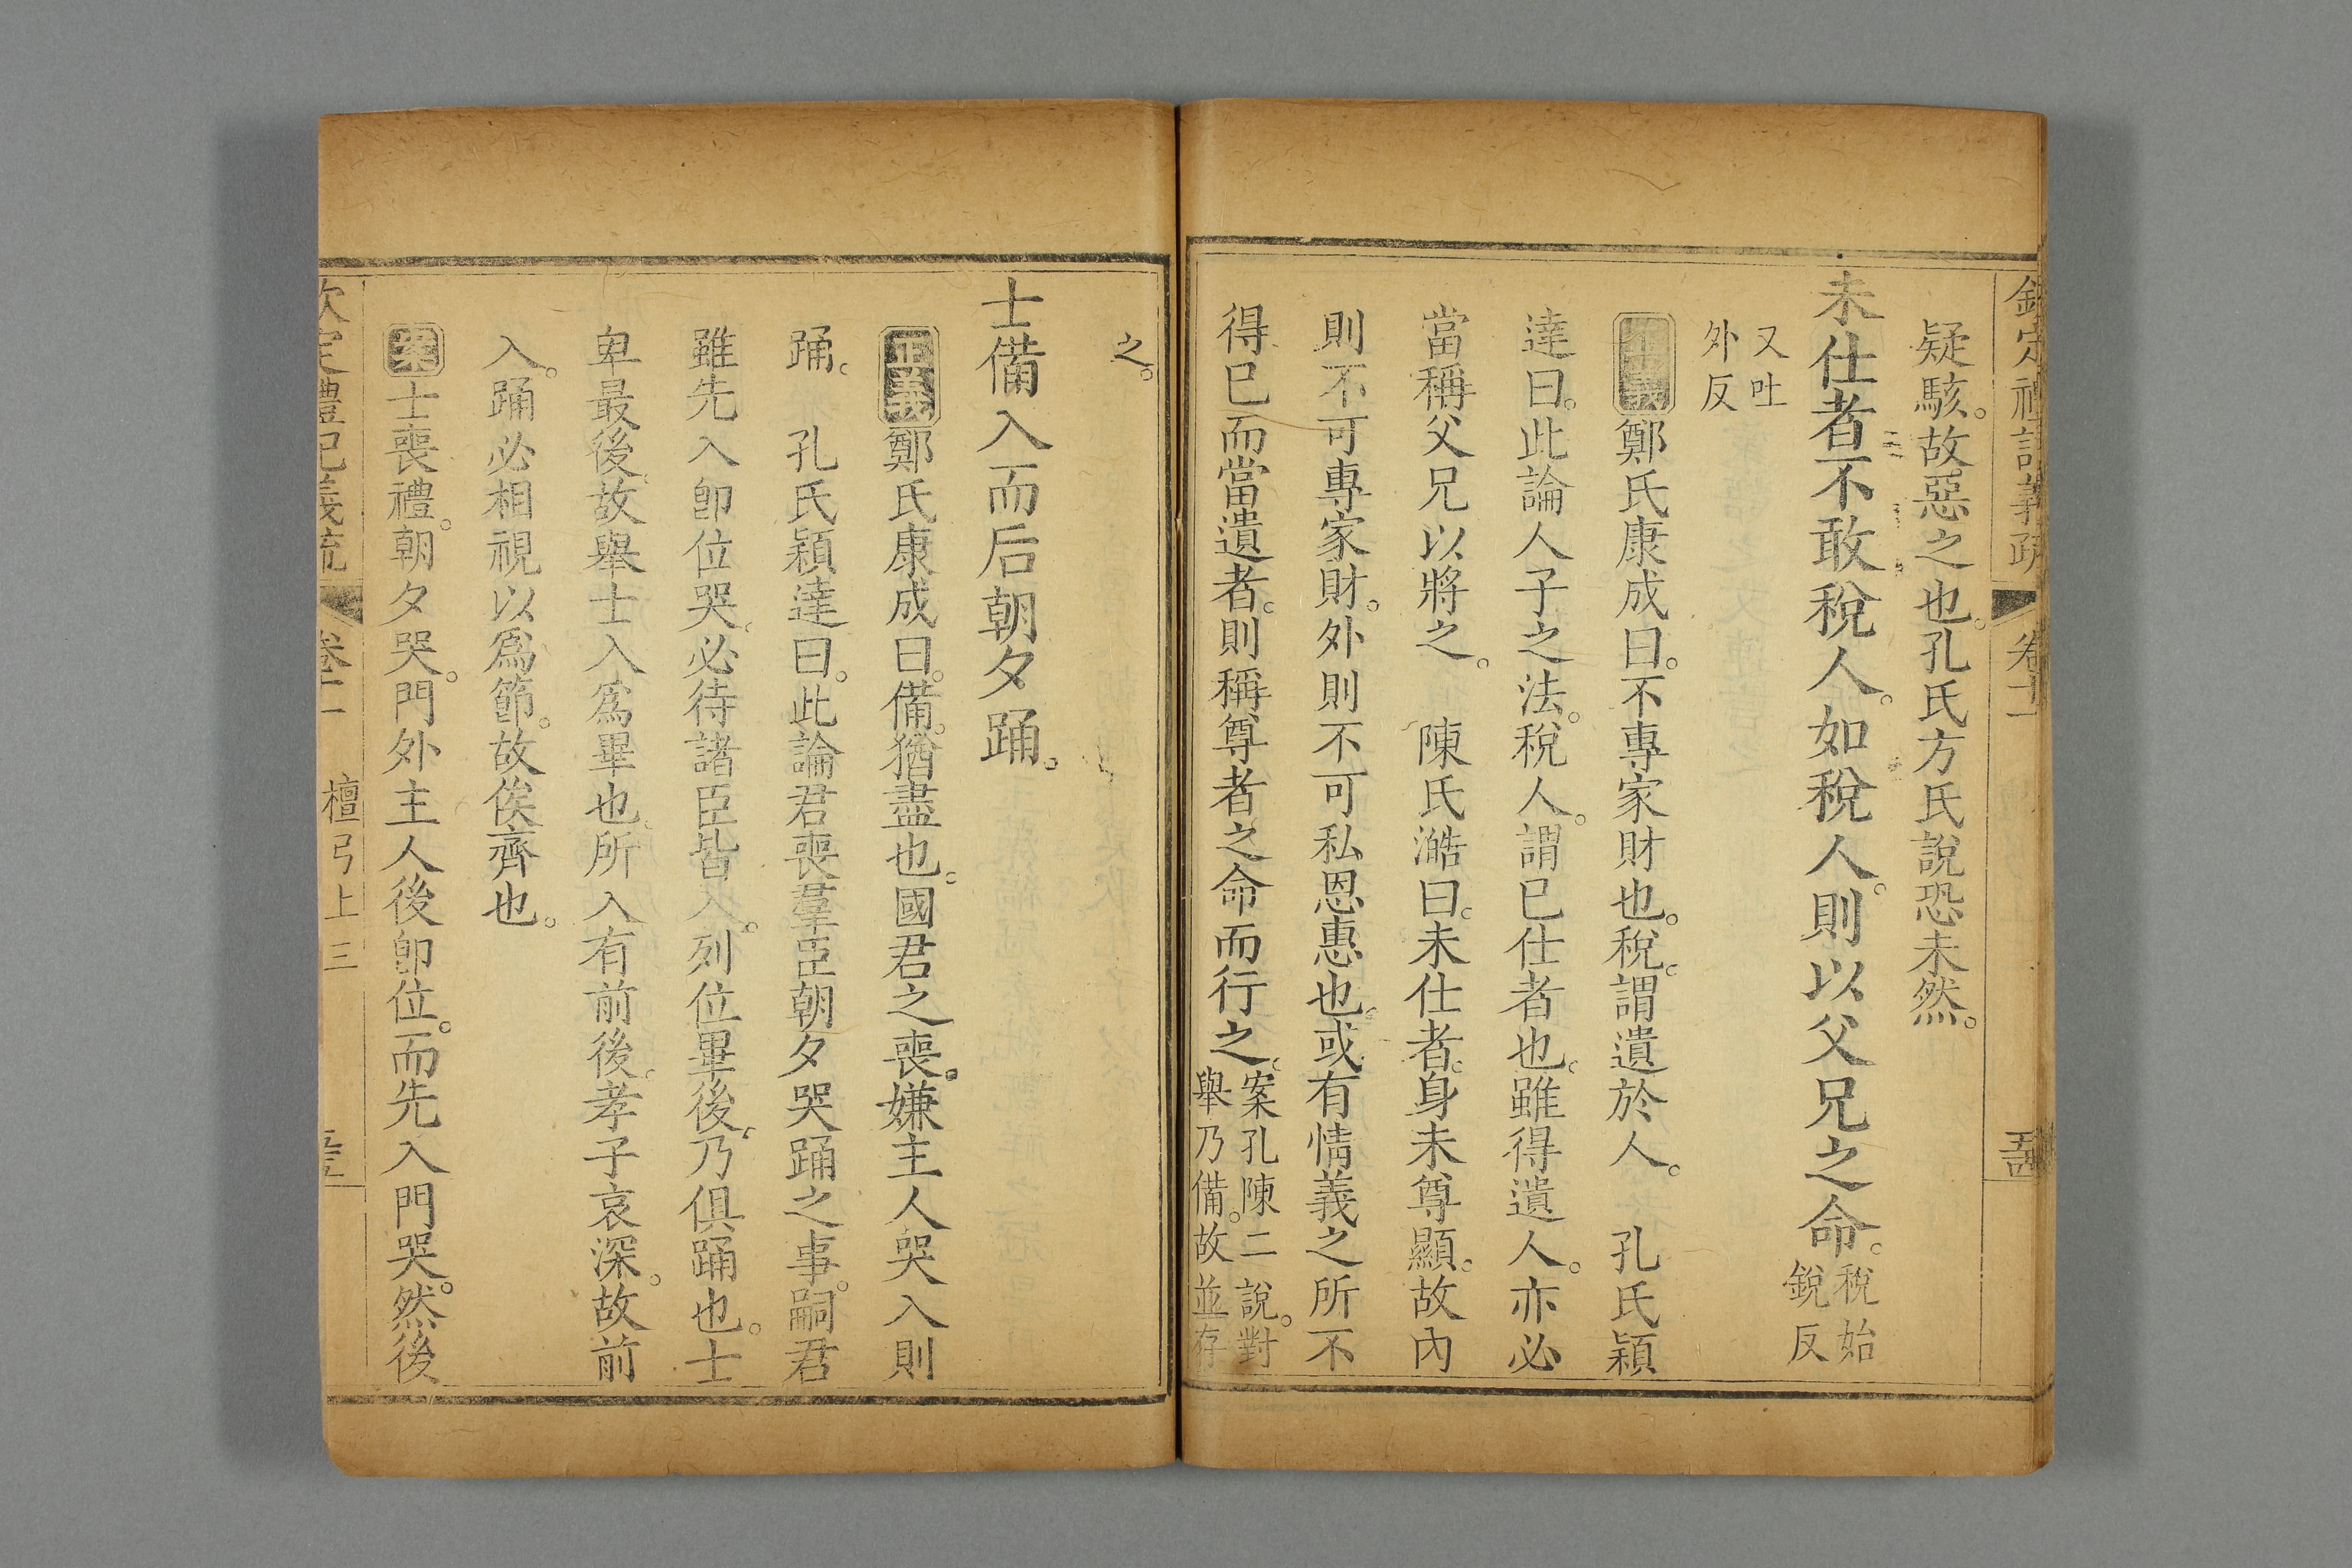 欽定禮記義疏 卷十一 五四
疑駭。故惡之也。孔氏方氏說恐未然。
未仕者不敢稅人。如稅人。則以父兄之命。稅始銳反
又吐外反
正義鄭氏康成曰。不專家財也。稅。謂遺於人。 孔氏穎
達曰。此論人子之法。稅人。謂已仕者也。雖得遺人。亦必
當稱父兄以將之。 陳氏澔曰。未仕者。身未尊顯。故內
則不可專家財。外則不可私恩惠也。或有情義之所不
得已而當遺者。則稱尊者之命而行之。案孔陳二說。對舉乃備。故並存
之。
士備入而后朝夕踊。
正義鄭氏康成曰。備。猶盡也。國君之喪。嫌主人哭入則
踊。 孔氏穎達曰。此論君喪羣臣朝夕哭踊之事。嗣君
雖先入卽位哭。必待諸臣皆入。列位畢後。乃俱踊也。士
卑最後。故舉士入爲畢也。所入有前後。孝子哀深。故前
入。踊必相視以爲節。故俟齊也。
案士喪禮。朝夕哭。門外主人後卽位。而先入門哭。然後
欽定禮記義疏 卷十一 檀弓上三